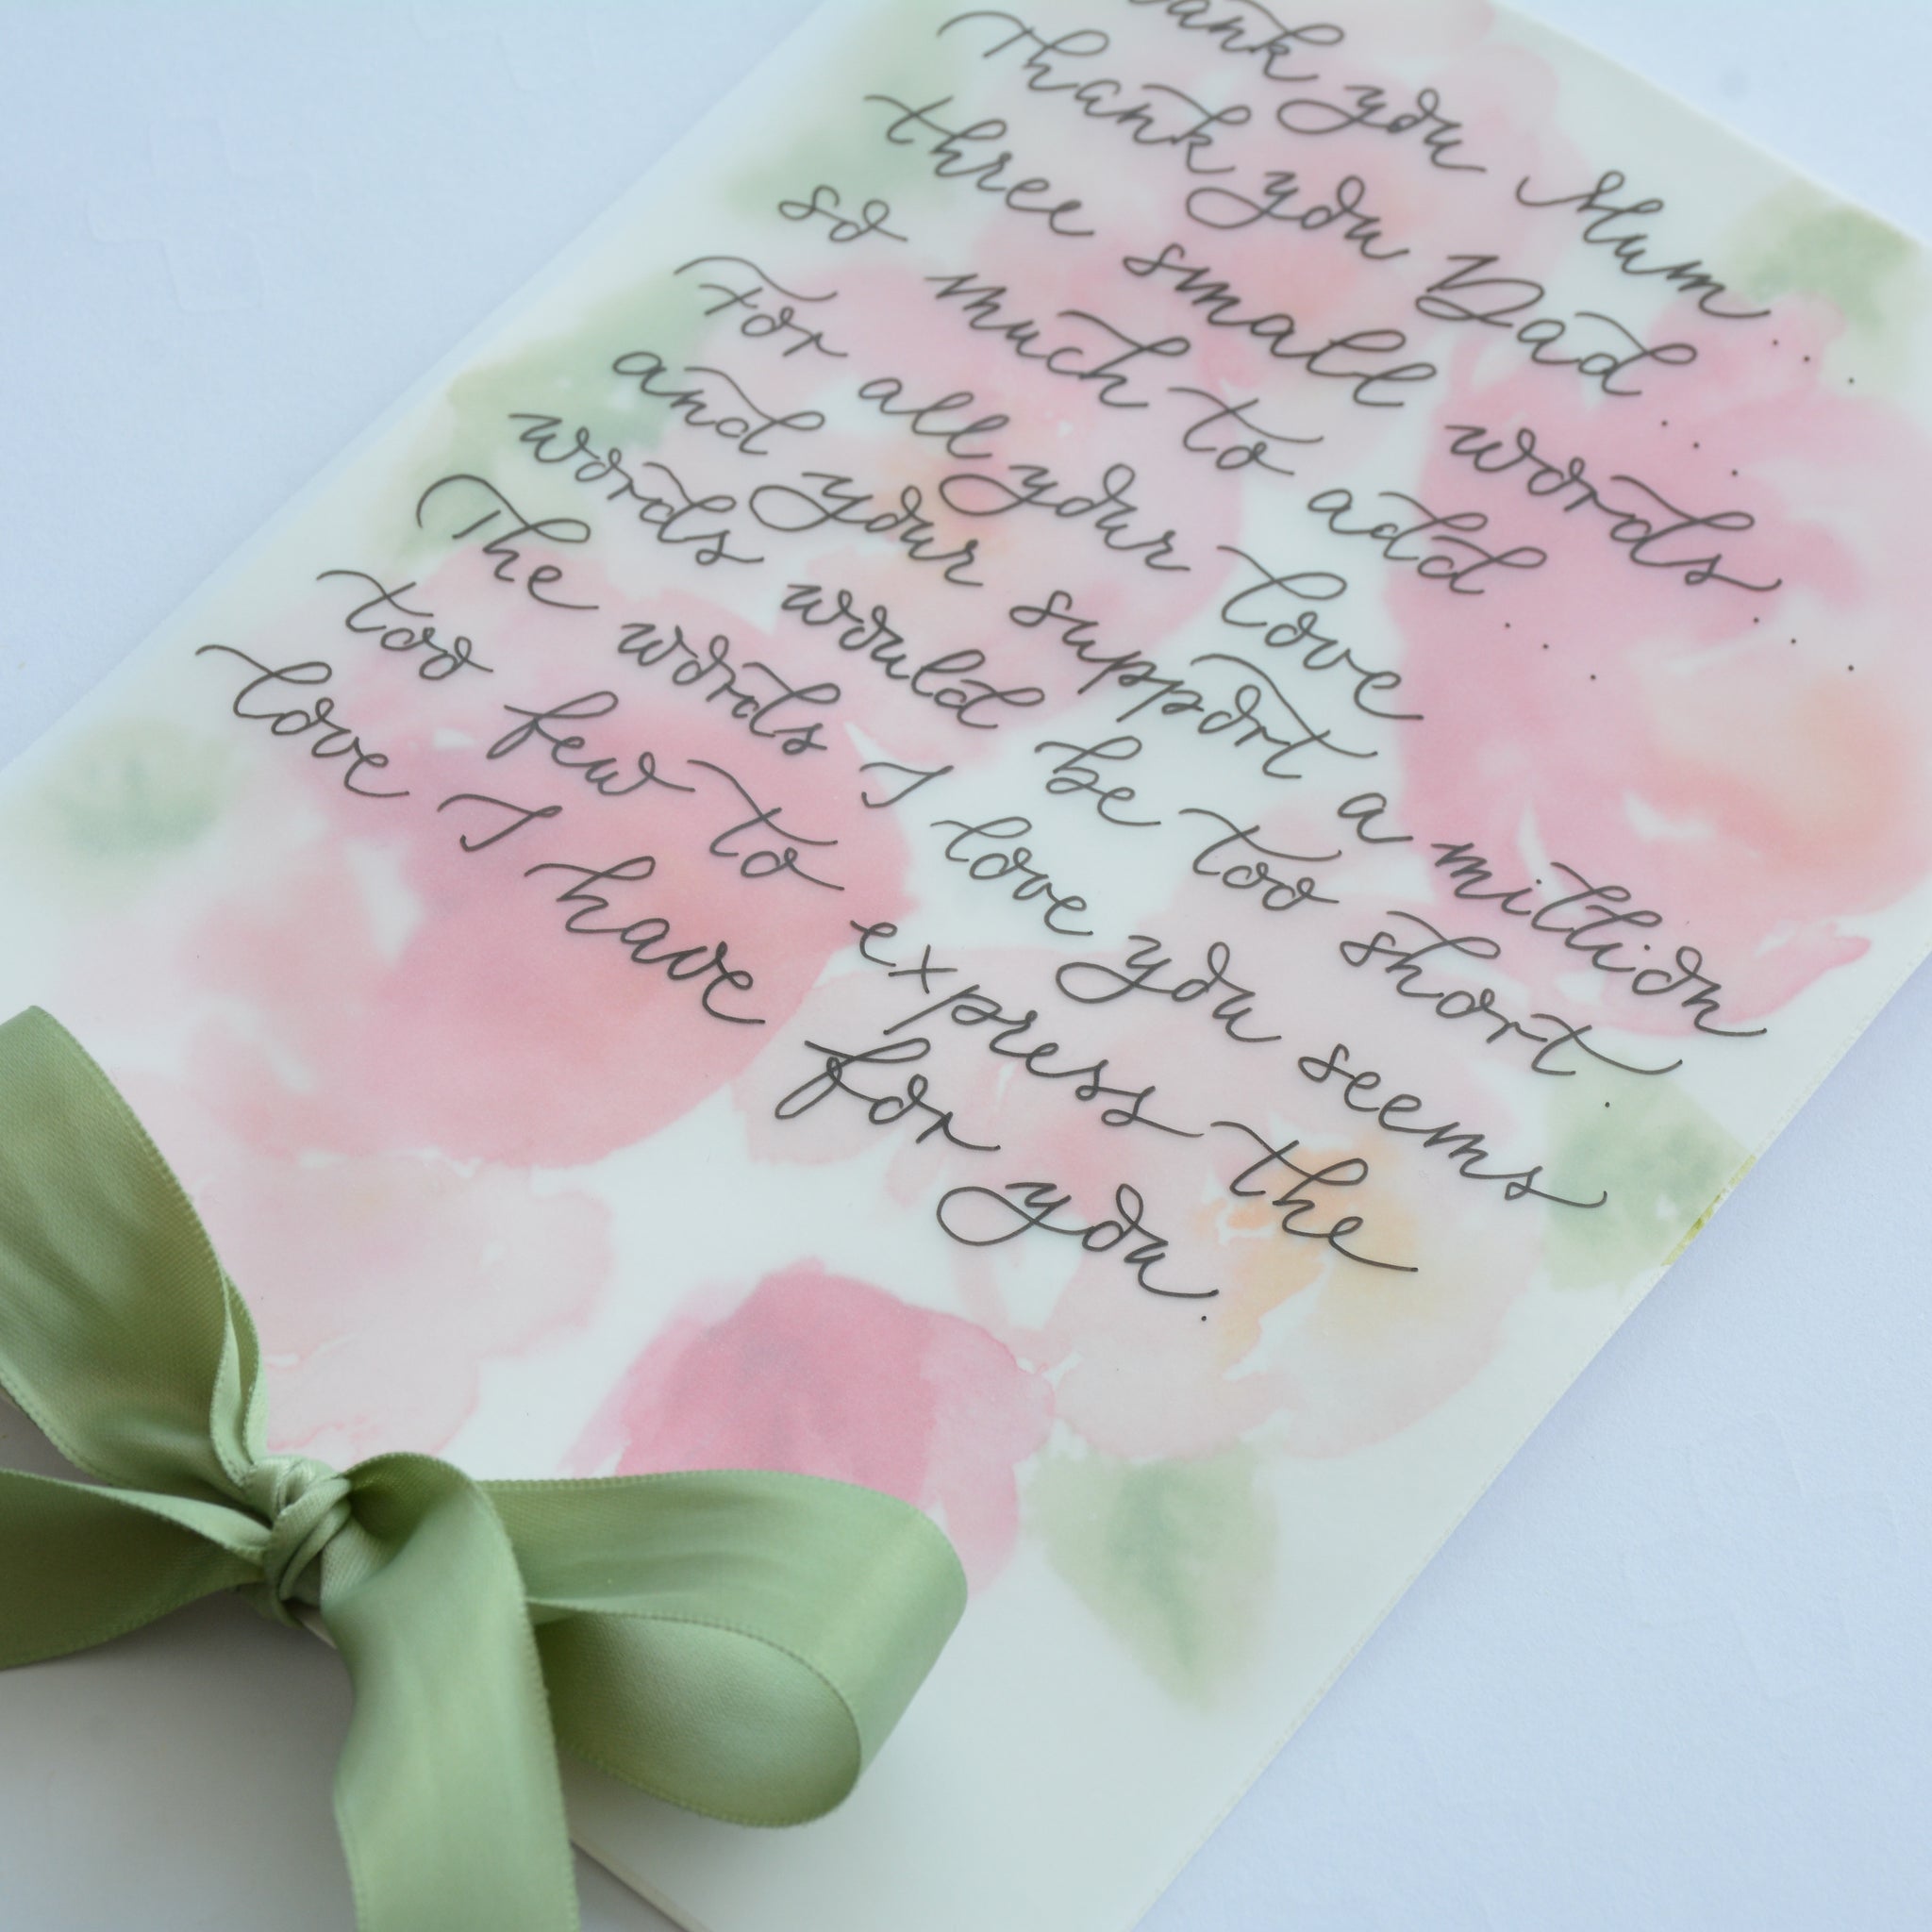 Thank you Mum...
Thank you Dad...
three small words...
so much to add...
For all your love
and your support a million
words would be too short.
The words I love you seems
too few to express the
love I have for you.